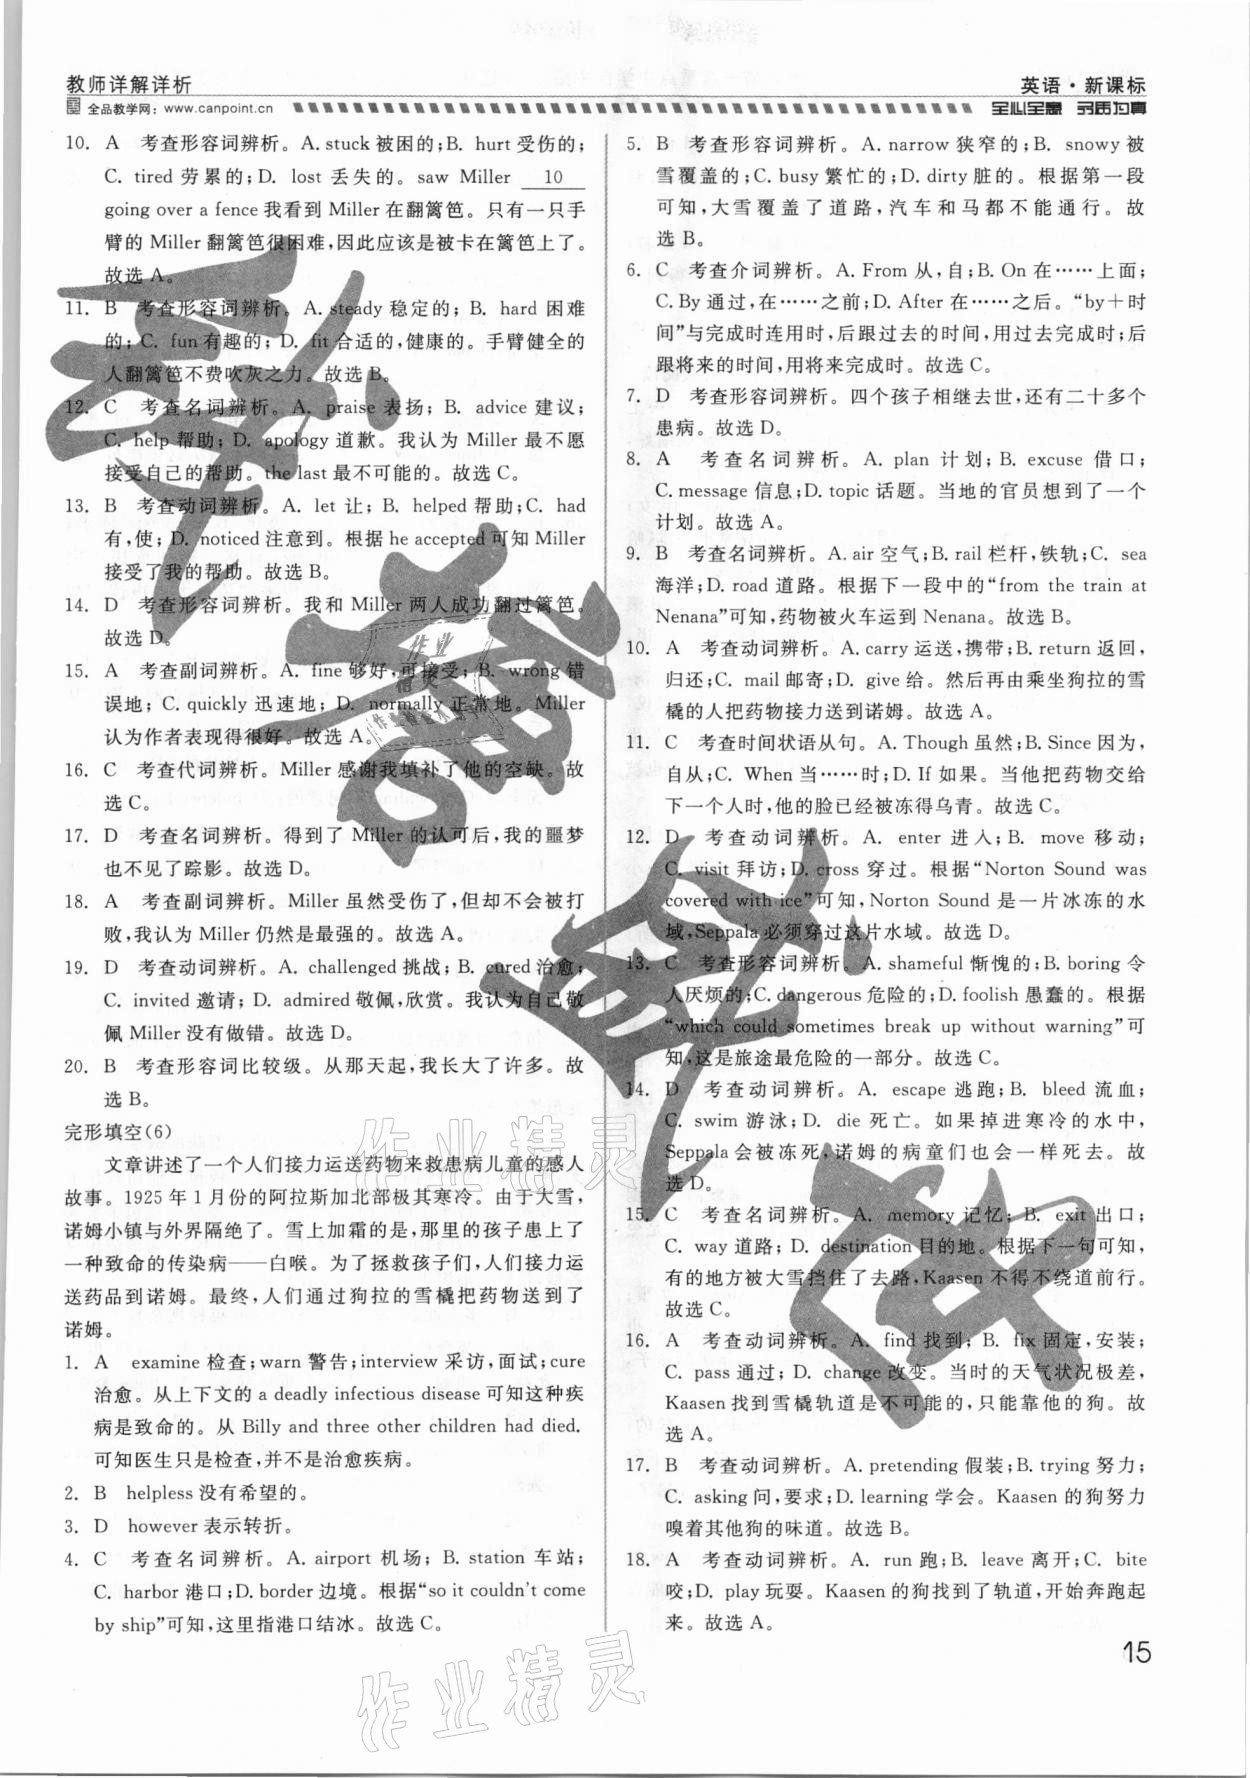 教师详解详析
英语·新课标
全品教学网：www.canpoint.cn
全心全意 字质为真
10. A 考查形容词辨析。A. stuck 被困的；B. hurt 受伤的；
C. tired 劳累的；D. lost 丢失的。saw Miller 10
going over a fence 我看到 Miller 在翻篱笆。只有一只手
臂的 Miller 翻篱笆很困难，因此应该是被卡在篱笆上了。
故选 A。
11. B 考查形容词辨析。A. steady 稳定的；B. hard 困难
的；C. fun 有趣的；D. fit 合适的，健康的。手臂健全的
人翻篱笆不费吹灰之力。故选 B。
12. C 考查名词辨析。A. praise 表扬；B. advice 建议；
C. help 帮助；D. apology 道歉。我认为 Miller 最不愿
接受自己的帮助。the last 最不可能的。故选 C。
13. B 考查动词辨析。A. let 让；B. helped 帮助；C. had
有，使；D. noticed 注意到。根据 he accepted 可知 Miller
接受了我的帮助。故选 B。
14. D 考查形容词辨析。我和 Miller 两人成功翻过篱笆。
故选 D。
15. A 考查副词辨析。A. fine 够好，可接受；B. wrong 错
误地；C. quickly 迅速地；D. normally 正常地。Miller
认为作者表现得很好。故选 A。
16. C 考查代词辨析。Miller 感谢我填补了他的空缺。故
选 C。
17. D 考查名词辨析。得到了 Miller 的认可后，我的噩梦
也不见了踪影。故选 D。
18. A 考查副词辨析。Miller 虽然受伤了，但却不会被打
败，我认为 Miller 仍然是最强的。故选 A。
19. D 考查动词辨析。A. challenged 挑战；B. cured 治愈；
C. invited 邀请；D. admired 敬佩，欣赏。我认为自己敬
佩 Miller 没有做错。故选 D。
20. B 考查形容词比较级。从那天起，我长大了许多。故
选 B。
完形填空(6)
文章讲述了一个人们接力运送药物来救患病儿童的感人
故事。1925 年 1 月份的阿拉斯加北部极其寒冷。由于大雪，
诺姆小镇与外界隔绝了。雪上加霜的是，那里的孩子患上了
一种致命的传染病——白喉。为了拯救孩子们，人们接力运
送药品到诺姆。最终，人们通过狗拉的雪橇把药物送到了
诺姆。
1. A examine 检查；warn 警告；interview 采访，面试；cure
治愈。从上下文的 a deadly infectious disease 可知这种疾
病是致命的。从 Billy and three other children had died.
可知医生只是检查，并不是治愈疾病。
2. B helpless 没有希望的。
3. D however 表示转折。
4. C 考查名词辨析。A. airport 机场；B. station 车站；
C. harbor 港口；D. border 边境。根据“so it couldn't come
by ship”可知，这里指港口结冰。故选 C。
5. B 考查形容词辨析。A. narrow 狭窄的；B. snowy 被
雪覆盖的；C. busy 繁忙的；D. dirty 脏的。根据第一段
可知，大雪覆盖了道路，汽车和马都不能通行。故
选 B。
6. C 考查介词辨析。A. From 从，自；B. On 在……上面；
C. By 通过，在……之前；D. After 在……之后。“by＋时
间”与完成时连用时，后跟过去的时间，用过去完成时；后
跟将来的时间，用将来完成时。故选 C。
7. D 考查形容词辨析。四个孩子相继去世，还有二十多个
患病。故选 D。
8. A 考查名词辨析。A. plan 计划；B. excuse 借口；
C. message 信息；D. topic 话题。当地的官员想到了一个
计划。故选 A。
9. B 考查名词辨析。A. air 空气；B. rail 栏杆，铁轨；C. sea
海洋；D. road 道路。根据下一段中的“from the train at
Nenana”可知，药物被火车运到 Nenana。故选 B。
10. A 考查动词辨析。A. carry 运送，携带；B. return 返回，
归还；C. mail 邮寄；D. give 给。然后再由乘坐狗拉的雪
橇的人把药物接力送到诺姆。故选 A。
11. C 考查时间状语从句。A. Though 虽然；B. Since 因为，
自从；C. When 当……时；D. If 如果。当他把药物交给
下一个人时，他的脸已经被冻得乌青。故选 C。
12. D 考查动词辨析。A. enter 进入；B. move 移动；
C. visit 拜访；D. cross 穿过。根据“Norton Sound was
covered with ice”可知，Norton Sound 是一片冰冻的水
域，Seppala 必须穿过这片水域。故选 D。
13. C 考查形容词辨析。A. shameful 惭愧的；B. boring 令
人厌烦的；C. dangerous 危险的；D. foolish 愚蠢的。根据
“which could sometimes break up without warning”可
知，这是旅途最危险的一部分。故选 C。
14. D 考查动词辨析。A. escape 逃跑；B. bleed 流血；
C. swim 游泳；D. die 死亡。如果掉进寒冷的水中，
Seppala 会被冻死，诺姆的病童们也会一样死去。故
选 D。
15. C 考查名词辨析。A. memory 记忆；B. exit 出口；
C. way 道路；D. destination 目的地。根据下一句可知，
有的地方被大雪挡住了去路，Kaasen 不得不绕道前行。
故选 C。
16. A 考查动词辨析。A. find 找到；B. fix 固定，安装；
C. pass 通过；D. change 改变。当时的天气状况极差，
Kaasen 找到雪橇轨道是不可能的，只能靠他的狗。故
选 A。
17. B 考查动词辨析。A. pretending 假装；B. trying 努力；
C. asking 问，要求；D. learning 学会。Kaasen 的狗努力
嗅着其他狗的味道。故选 B。
18. A 考查动词辨析。A. run 跑；B. leave 离开；C. bite
咬；D. play 玩耍。Kaasen 的狗找到了轨道，开始奔跑起
来。故选 A。
15
作业精灵
作业精灵